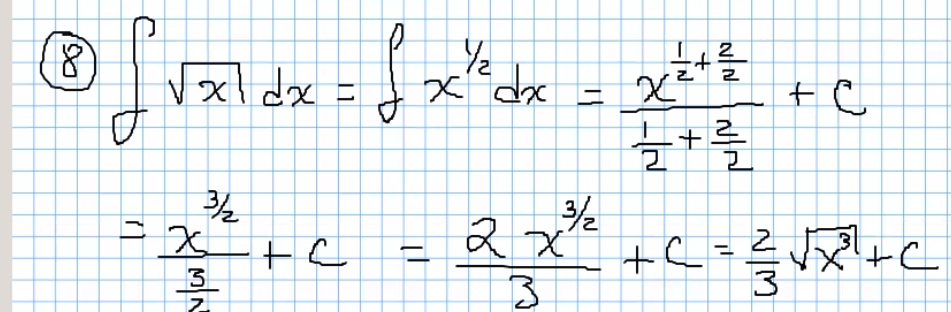 ⑧ ∫ √x dx = ∫ x^{1/2} dx = \frac{x^{\frac{1}{2}+\frac{2}{2}}}{\frac{1}{2}+\frac{2}{2}} + C
= \frac{x^{3/2}}{\frac{3}{2}} + C = \frac{2 x^{3/2}}{3} + C = \frac{2}{3} √{x^3} + C